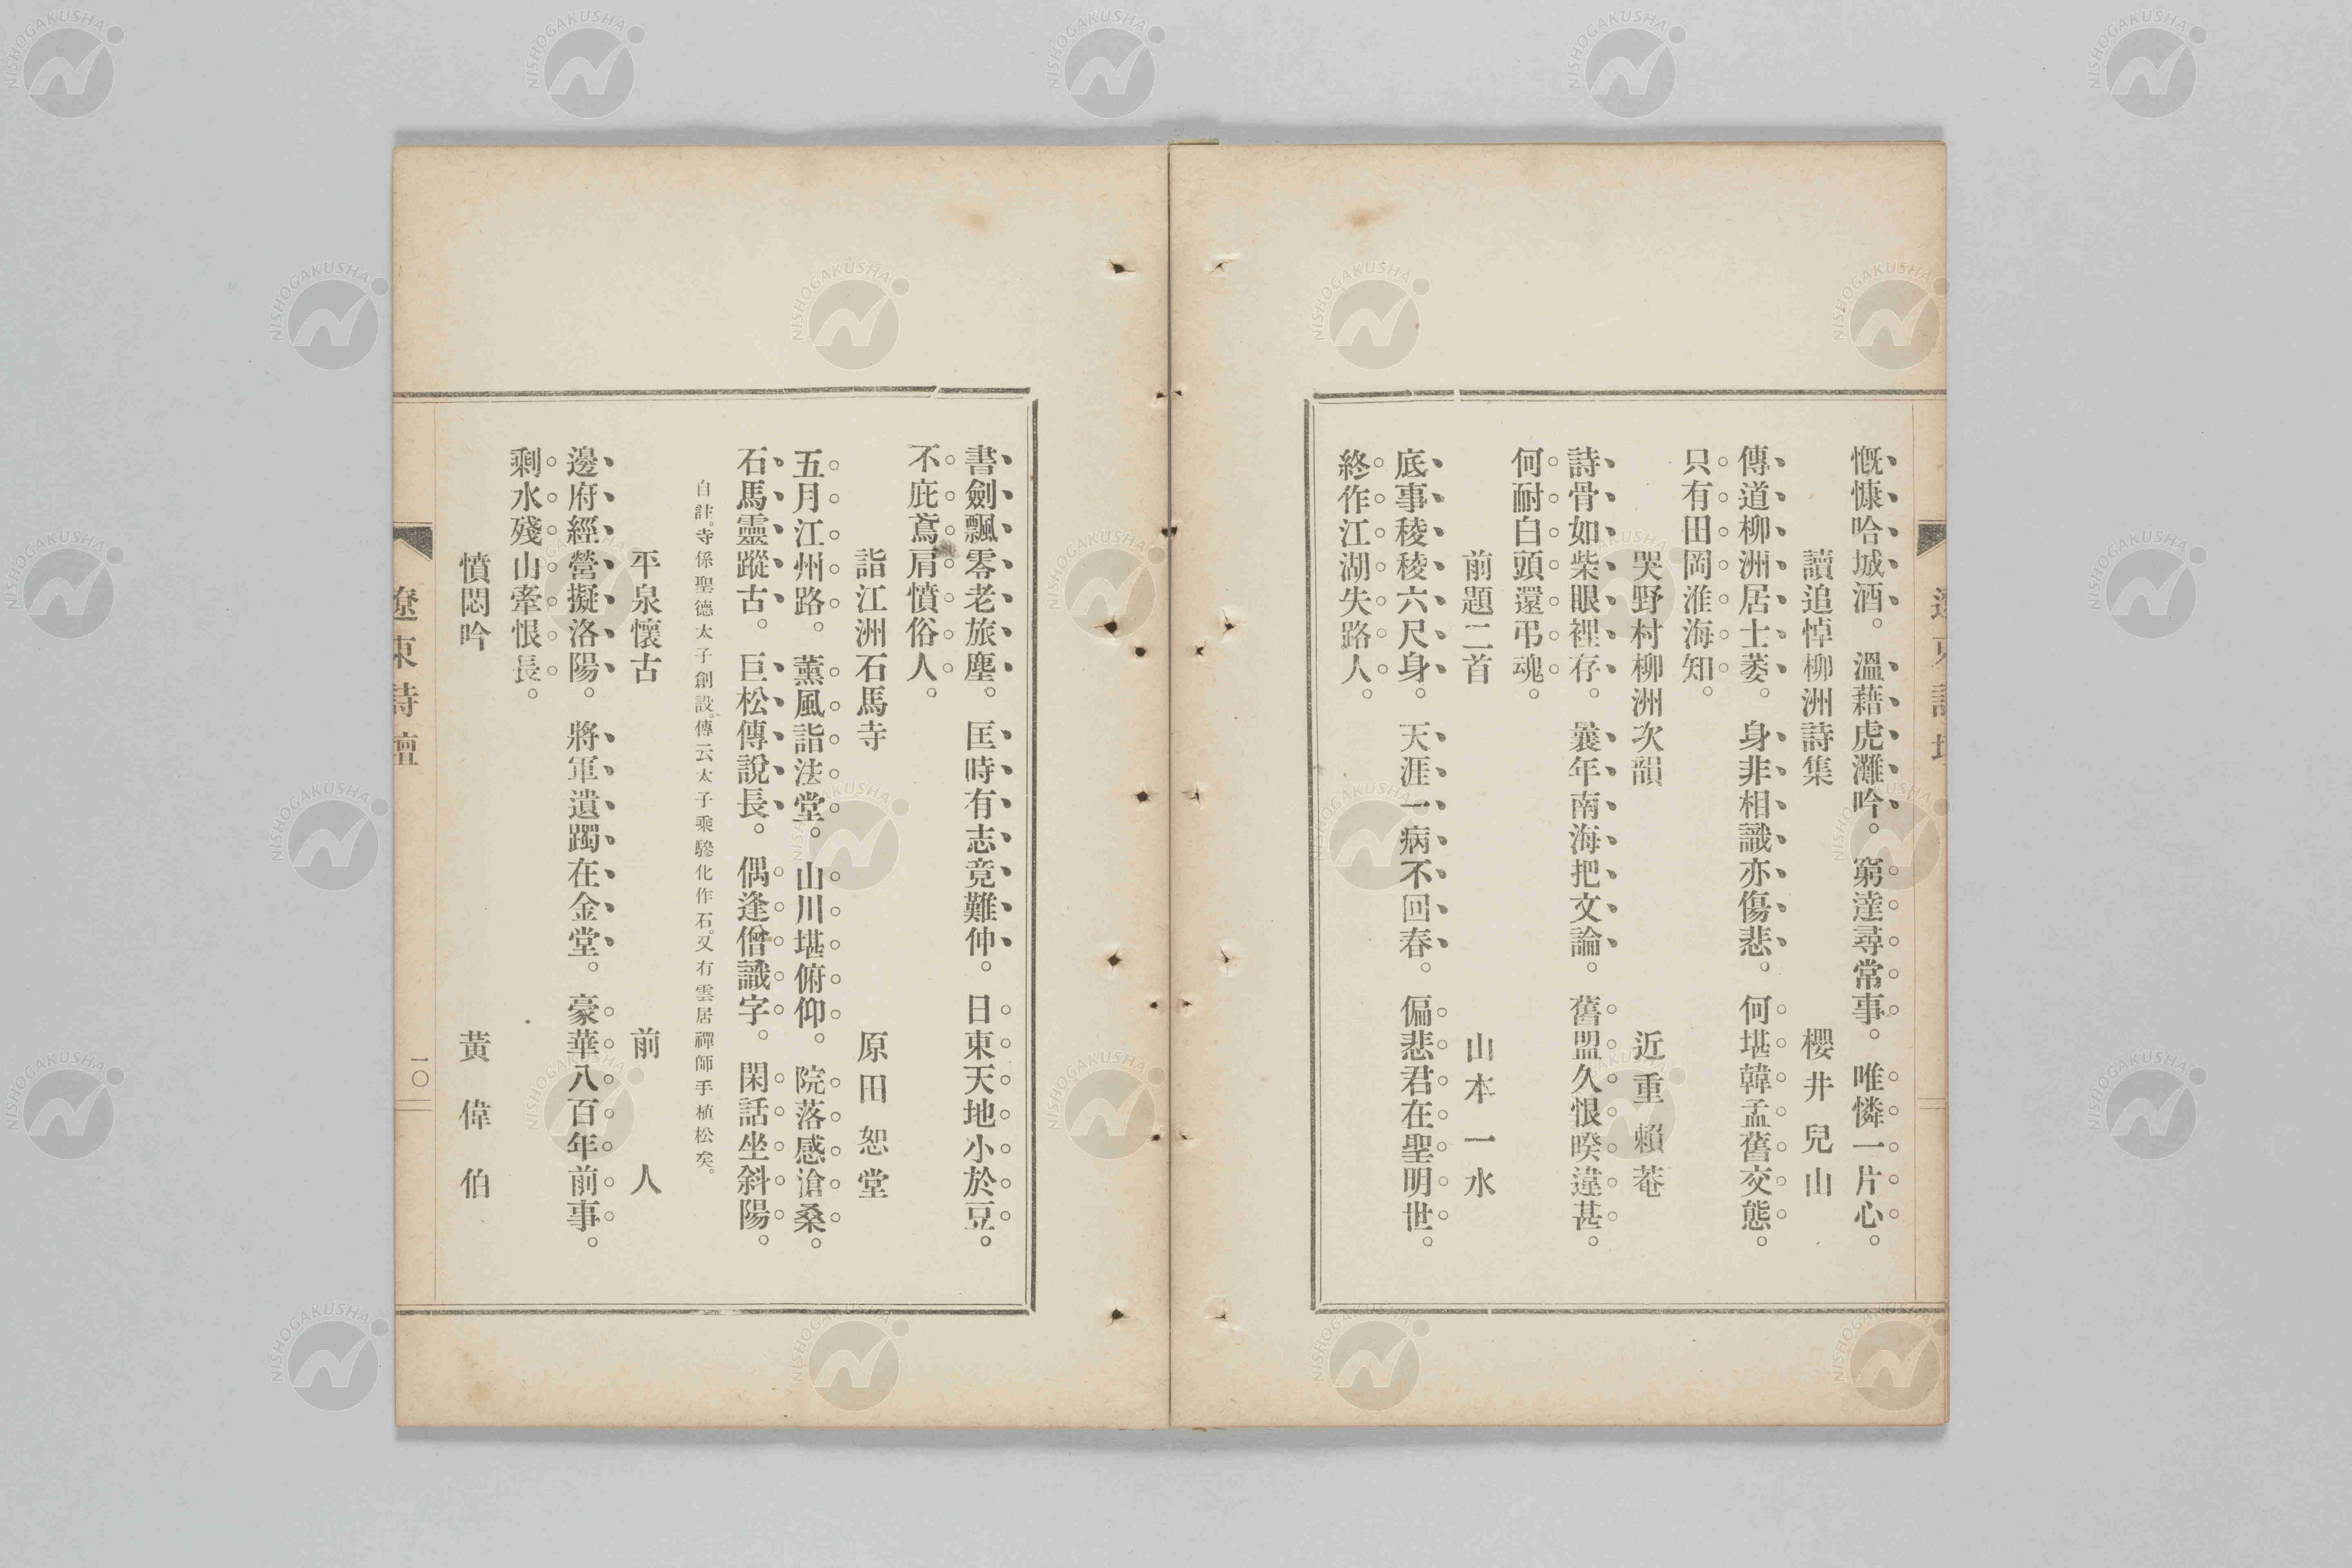 慨慷哈城酒。溫藉虎灘吟。窮達尋常事。唯憐一片心。
讀追悼柳洲詩集 櫻井兒山
傳道柳洲居士萎。身非相識亦傷悲。何堪韓孟舊交態。
只有田岡淮海知。
哭野村柳洲次韻 近重賴菴
詩骨如柴眼裡存。曩年南海把文論。舊盟久恨暌違甚。
何耐白頭還弔魂。
前題二首 山本一水
底事稜稜六尺身。天涯一病不回春。偏悲君在聖明世。
終作江湖失路人。
書劍飄零老旅塵。匡時有志竟難伸。日東天地小於豆。
不庇鳶肩憤俗人。
詣江洲石馬寺 原田恕堂
五月江州路。薰風詣法堂。山川堪俯仰。院落感滄桑。
石馬靈蹤古。巨松傳說長。偶逢僧識字。閑話坐斜陽。
自註。寺係聖德太子創設。傳云太子乘驂化作石。又有雲居禪師手植松矣。
平泉懷古 前人
邊府經營擬洛陽。將軍遺躅在金堂。豪華八百年前事。
剩水殘山牽恨長。
憤悶吟 黃偉伯
遼東詩壇
一〇
NISHOGAKUSHA